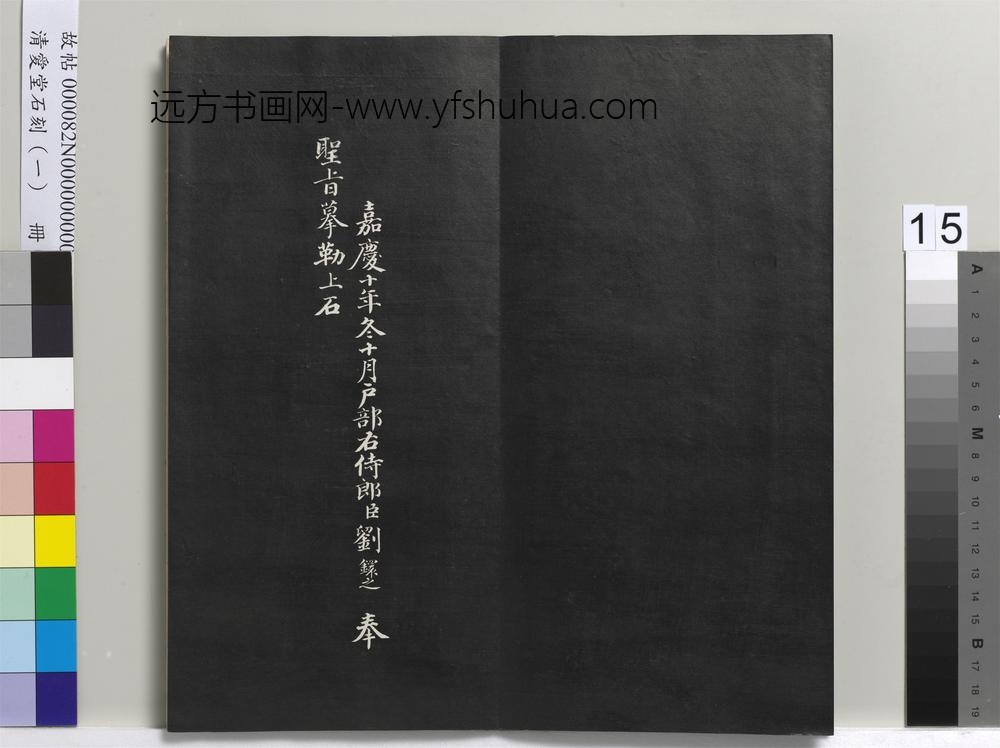 故帖 000082N00000000
清愛堂石刻（一） 冊
远方书画网-www.yfshuhua.com
嘉慶十年冬十月戶部右侍郎臣劉鐶之 奉
聖旨摹勒上石
15
A
1
2
3
4
5
6
M
8
9
10
11
12
13
14
15
B
17
18
19